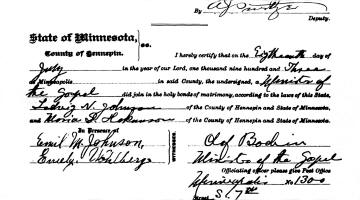 By
Deputy.
State of Minnesota,
County of Hennepin. } ss.
I hereby certify that on the Eighteenth day of
July in the year of our Lord, one thousand nine hundred and Three
at Minneapolis in said County, the undersigned, a Minister of
the Gospel did join in the holy bonds of matrimony, according to the laws of this State,
Ludvig N. Johnson of the County of Hennepin and State of Minnesota,
and Maria of the County of Hennepin and State of Minnesota.
In Presence of
Emil M. Johnson,
WITNESSES.
Olof Bodien
Emely Wohlberge
Minister of the Gospel
Officiating officer please give Post Office
Minneapolis No. 1300
Street S. 7th